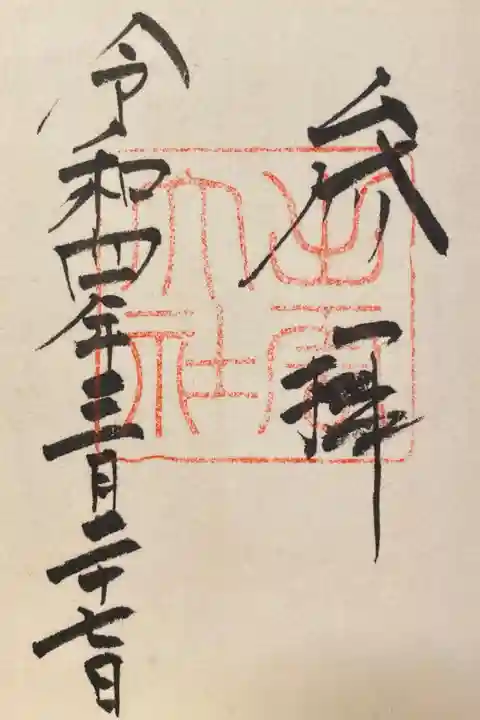 参拝
出雲大社
令和四年三月二十七日